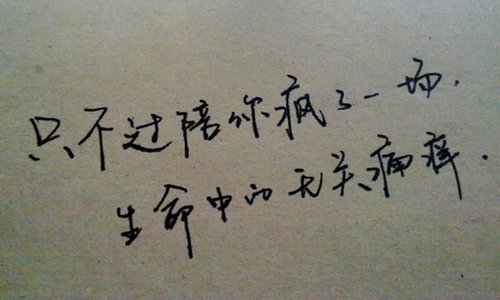 只不过陪你疯了一场.
生命中的无关痛痒.